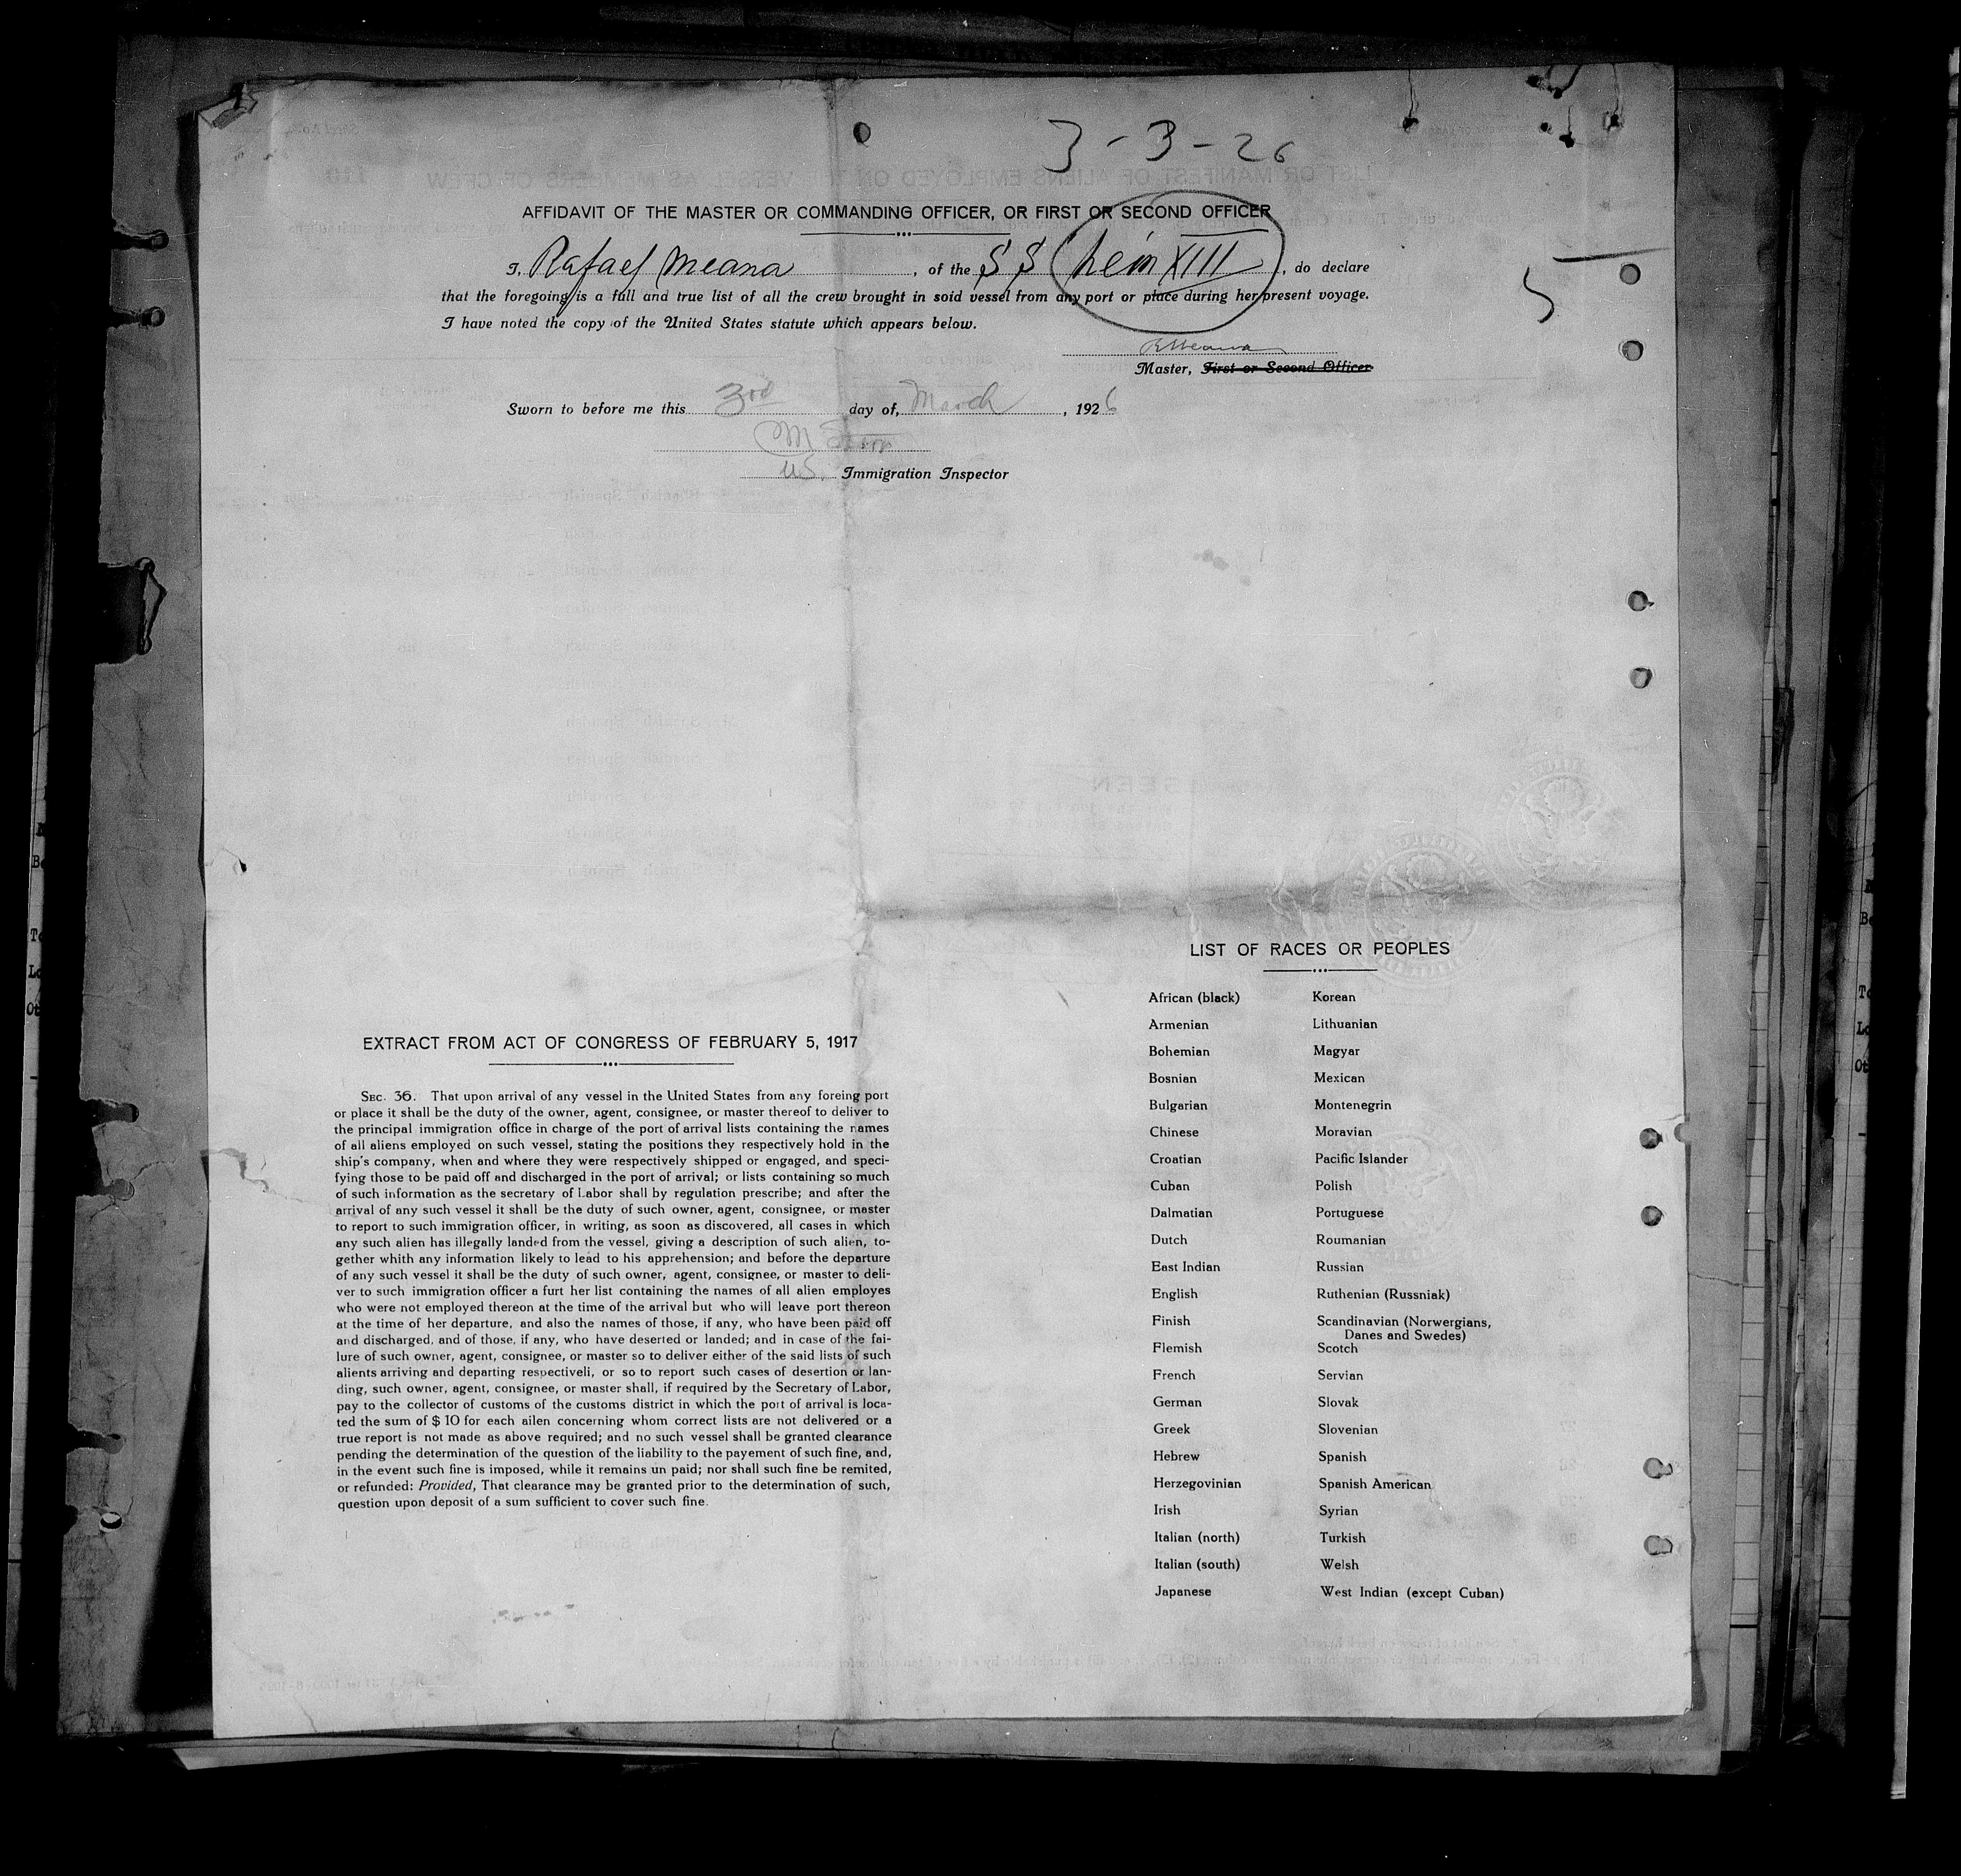 3-3-26
AFFIDAVIT OF THE MASTER OR COMMANDING OFFICER, OR FIRST OR SECOND OFFICER
I, Rafael Meana, of the SS León XIII, do declare
that the foregoing is a full and true list of all the crew brought in soid vessel from any port or place during her present voyage.
I have noted the copy of the United States statute which appears below.
5
RMeana
Master, First or Second Officer
Sworn to before me this 3rd day of, March, 1926
U.S. Immigration Inspector
LIST OF RACES OR PEOPLES
African (black) Korean
Armenian Lithuanian
Bohemian Magyar
Bosnian Mexican
Bulgarian Montenegrin
Chinese Moravian
Croatian Pacific Islander
Cuban Polish
Dalmatian Portuguese
Dutch Roumanian
East Indian Russian
English Ruthenian (Russniak)
Finish Scandinavian (Norwergians,
Danes and Swedes)
Flemish Scotch
French Servian
German Slovak
Greek Slovenian
Hebrew Spanish
Herzegovinian Spanish American
Irish Syrian
Italian (north) Turkish
Italian (south) Welsh
Japanese West Indian (except Cuban)
EXTRACT FROM ACT OF CONGRESS OF FEBRUARY 5, 1917
SEC. 36. That upon arrival of any vessel in the United States from any foreing port
or place it shall be the duty of the owner, agent, consignee, or master thereof to deliver to
the principal immigration office in charge of the port of arrival lists containing the names
of all aliens employed on such vessel, stating the positions they respectively hold in the
ship's company, when and where they were respectively shipped or engaged, and speci-
fying those to be paid off and discharged in the port of arrival; or lists containing so much
of such information as the secretary of Labor shall by regulation prescribe; and after the
arrival of any such vessel it shall be the duty of such owner, agent, consignee, or master
to report to such immigration officer, in writing, as soon as discovered, all cases in which
any such alien has illegally landed from the vessel, giving a description of such alien, to-
gether whith any information likely to lead to his apprehension; and before the departure
of any such vessel it shall be the duty of such owner, agent, consignee, or master to deli-
ver to such immigration officer a furt her list containing the names of all alien employes
who were not employed thereon at the time of the arrival but who will leave port thereon
at the time of her departure, and also the names of those, if any, who have been paid off
and discharged, and of those, if any, who have deserted or landed; and in case of the fai-
lure of such owner, agent, consignee, or master so to deliver either of the said lists of such
alients arriving and departing respectiveli, or so to report such cases of desertion or lan-
ding, such owner, agent, consignee, or master shall, if required by the Secretary of Labor,
pay to the collector of customs of the customs district in which the port of arrival is loca-
ted the sum of $ 10 for each ailen concerning whom correct lists are not delivered or a
true report is not made as above required; and no such vessel shall be granted clearance
pending the determination of the question of the liability to the payement of such fine, and,
in the event such fine is imposed, while it remains un paid; nor shall such fine be remited,
or refunded: Provided, That clearance may be granted prior to the determination of such,
question upon deposit of a sum sufficient to cover such fine.